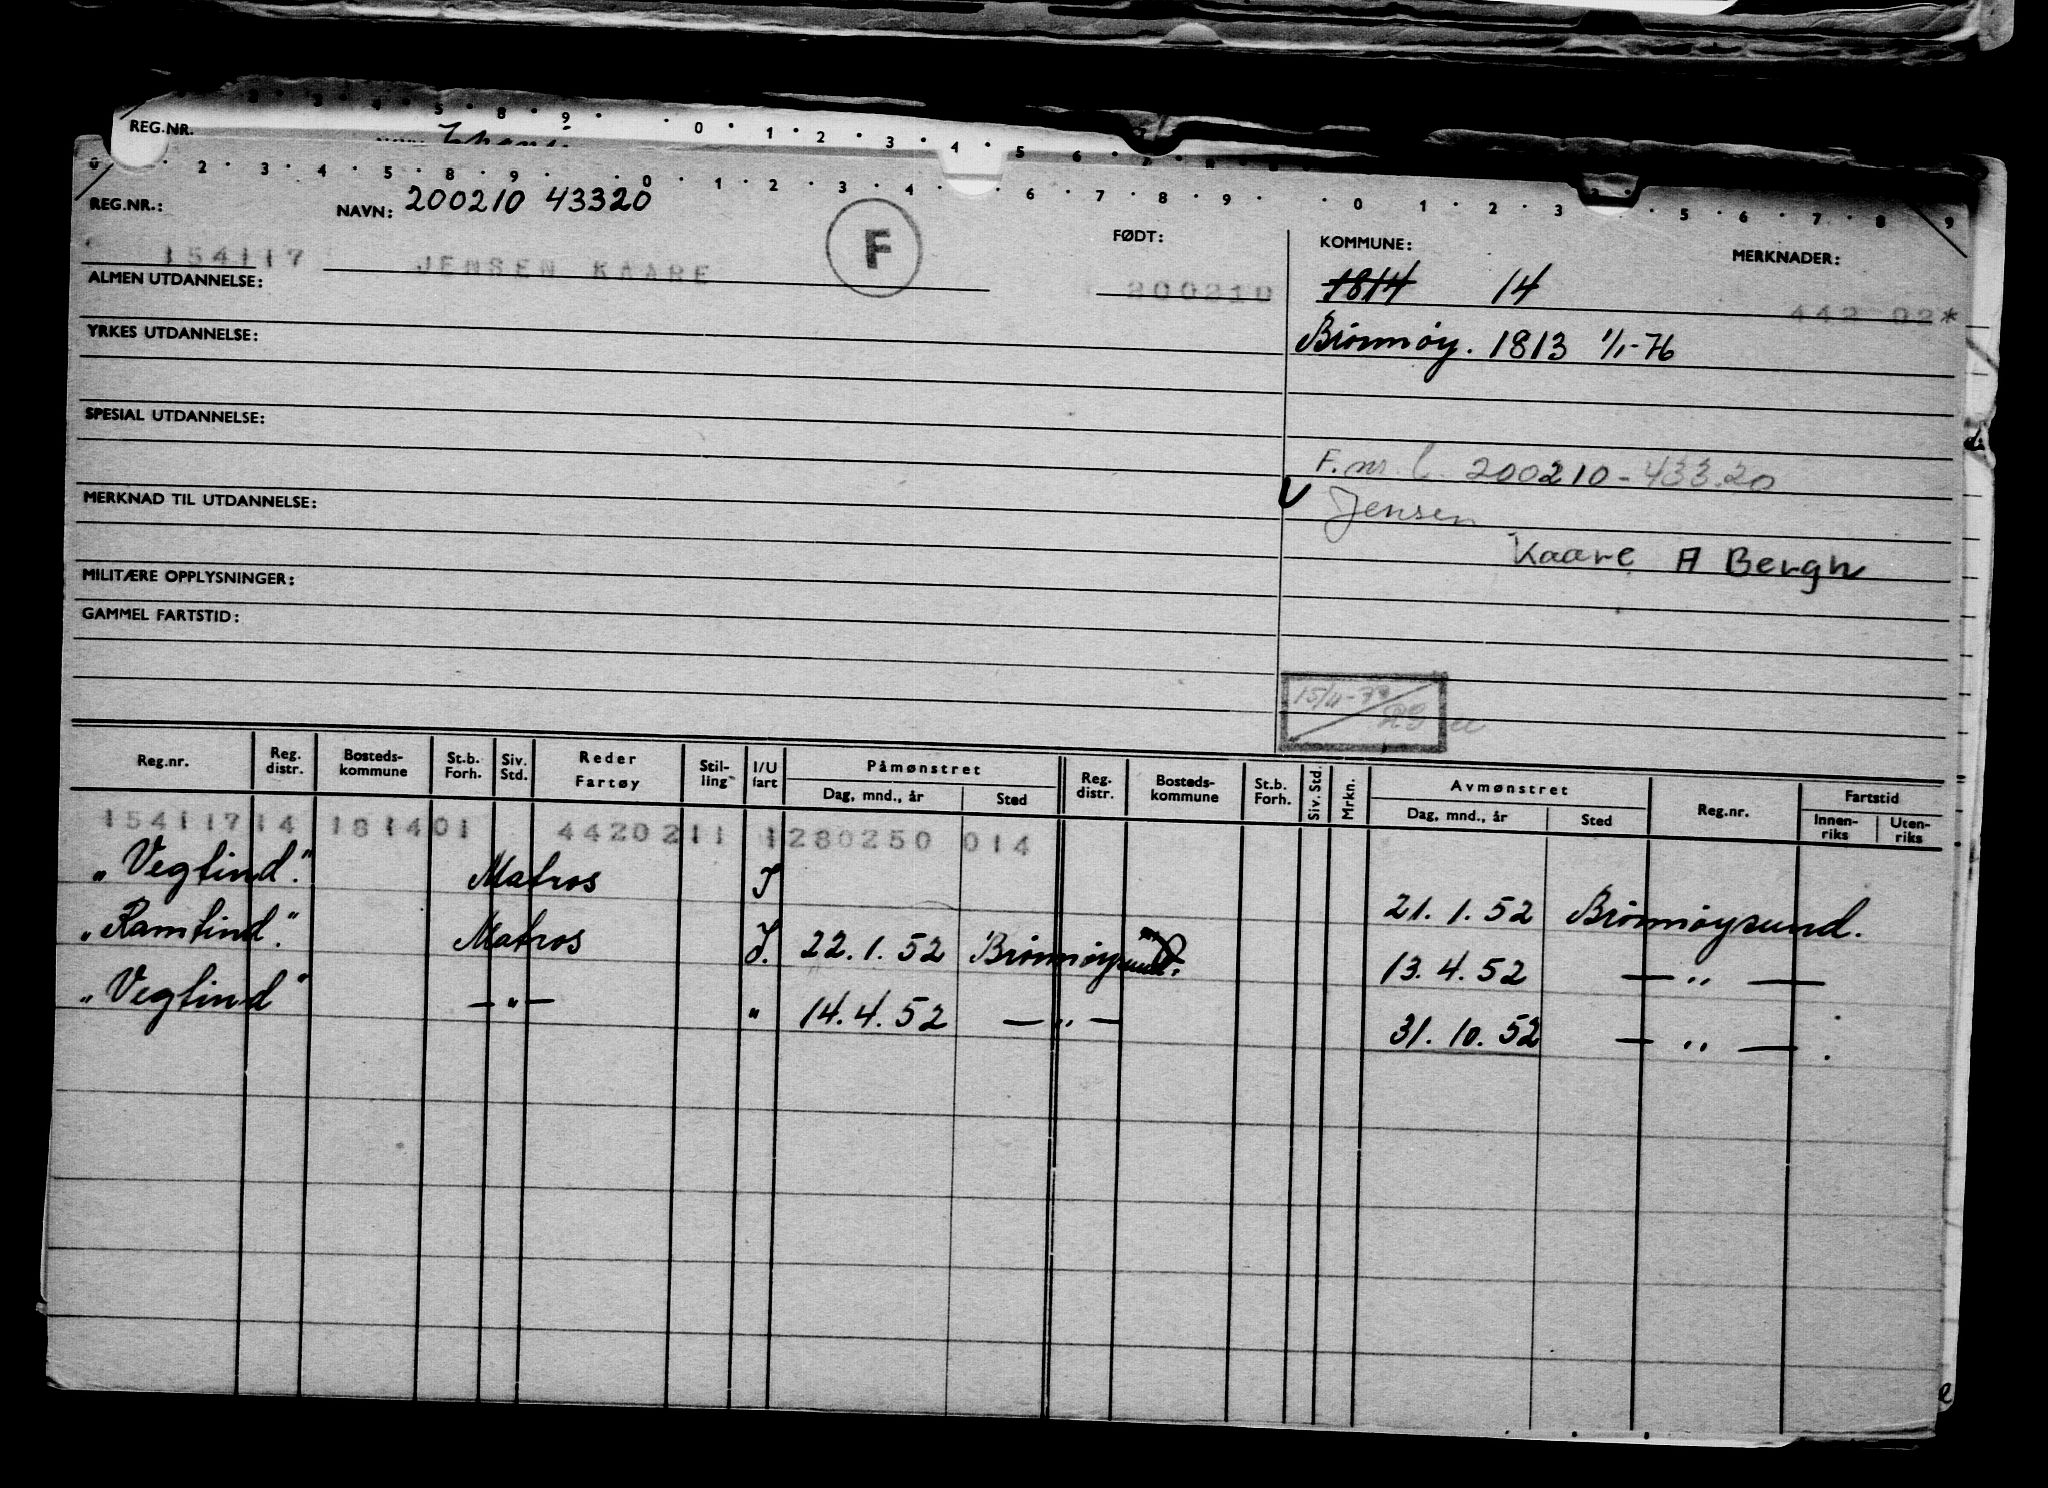 REG.NR.
REG.NR.: NAVN: 200210 43320 FØDT: KOMMUNE: MERKNADER:
154117 JENSEN KAARE F 200210 1814 14 442 02*
ALMEN UTDANNELSE:
YRKES UTDANNELSE: Brönnöy. 1813 1/1-76
SPESIAL UTDANNELSE:
F.nr. 200210-43320
MERKNAD TIL UTDANNELSE: Jensen
Kaare A Bergh
MILITÆRE OPPLYSNINGER:
GAMMEL FARTSTID:
Reg.nr. Reg. distr. Bosteds-kommune St.b. Forh. Siv. Std. Reder Fartøy Stil-ling I/U fart Påmønstret Dag, mnd., år Sted Reg. distr. Bosteds-kommune St.b. Forh. Siv. Std. Mrkn. Avmønstret Dag, mnd., år Sted Reg.nr. Fartstid Innen-riks Uten-riks
154117 14 1814 01 4420211 1 280250 014
"Vegtind." Matros I 21. 1. 52 Brönnöysund.
"Ramtind." Matros I. 22. 1. 52 Brönnöysund. 13. 4. 52 — " —
"Vegtind" — " — " 14. 4. 52 — " — 31. 10. 52 — " — .